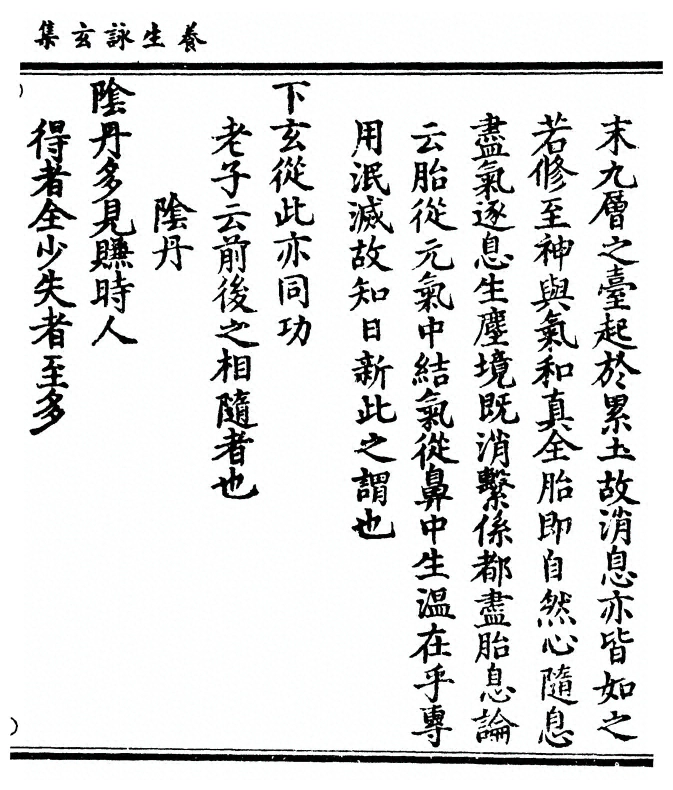 養生詠玄集
末九層之臺起於累土故消息亦皆如之
若修至神與氣和真全胎即自然心隨息
盡氣逐息生塵境既消繫係都盡胎息論
云胎從元氣中結氣從鼻中生溫在乎專
用泯滅故知日新此之謂也
下玄從此亦同功
老子云前後之相隨者也
陰丹
陰丹多見賺時人
得者全少失者至多